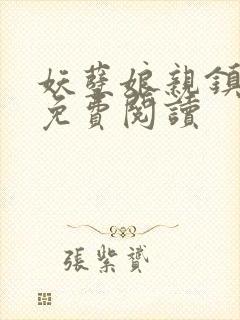 妖孽娘親鎮
免費閱讀
張紫贇